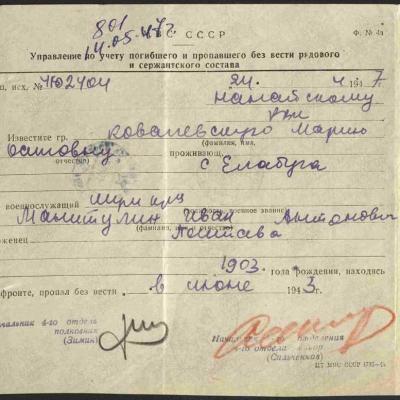 801
14.05.47г.
ВС СССР
Ф. № 4а
Управление по учету погибшего и пропавшего без вести рядового
и сержантского состава
исх. № Ю2404 24. 4 1947
Нанайскому
РВК
Известите гр. Ковалевскую Марию
(фамилия, имя,
Осиповну проживающ.
отчество)
с Елабуга
военнослужащий
(военное звание)
Манитулин Иван Антонович
(фамилия, имя и отчество)
1903 года рождения, находясь
фронте, пропал без вести в июне 1943г.
Начальник 4-го отдела
полковник
(Зимин)
Начальник отделения
4-го отдела майор
(Сильченков)
ЦТ МВС СССР